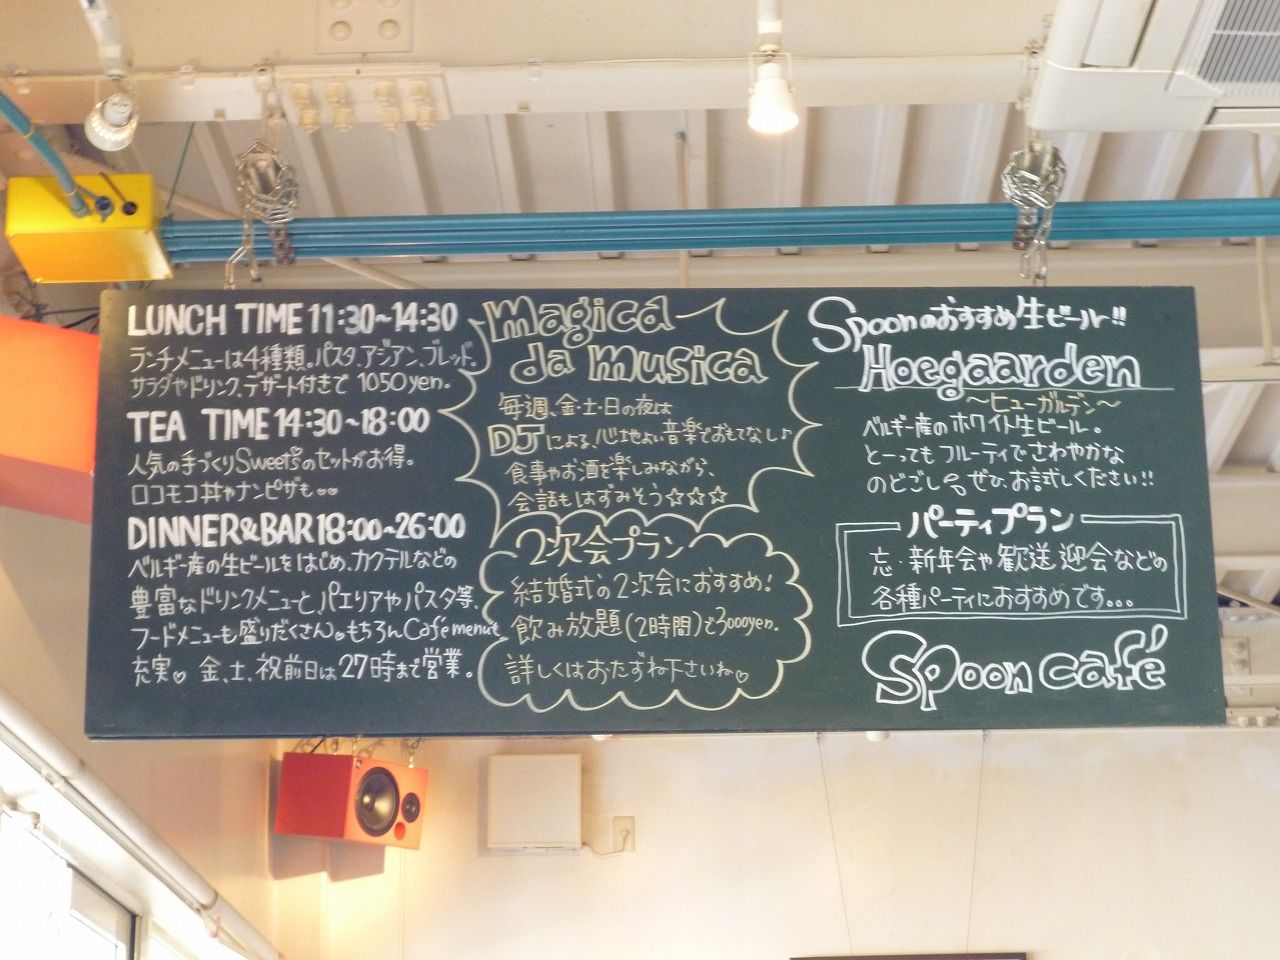 LUNCH TIME 11:30~14:30
ランチメニューは4種類。パスタ、アジアン、ブレッド。
サラダやドリンク、デザート付きで 1050yen.
TEA TIME 14:30~18:00
人気の手づくりSweetsのセットがお得。
ロコモコ丼やナンピザも♡♡
DINNER&BAR 18:00~26:00
ベルギー産の生ビールをはじめ、カクテルなどの
豊富なドリンクメニューと、パエリアやパスタ等、
フードメニューも盛りだくさん。もちろんCafé menuも
充実♡ 金、土、祝前日は27時まで営業。
Magica
da musica
毎週、金・土・日の夜は
DJによる心地よい音楽でおもてなし♪
食事やお酒を楽しみながら、
会話もはずみそう☆☆☆
2次会プラン
結婚式の2次会におすすめ!
飲み放題(2時間)で3000yen.
詳しくはおたずね下さいね♡
Spoonのおすすめ生ビール!!
Hoegaarden
~ヒューガルデン~
ベルギー産のホワイト生ビール。
とーってもフルーティでさわやかな
のどごし ぜひ、お試しください!!
パーティプラン
忘・新年会や歓送迎会などの
各種パーティにおすすめです...
Spoon café